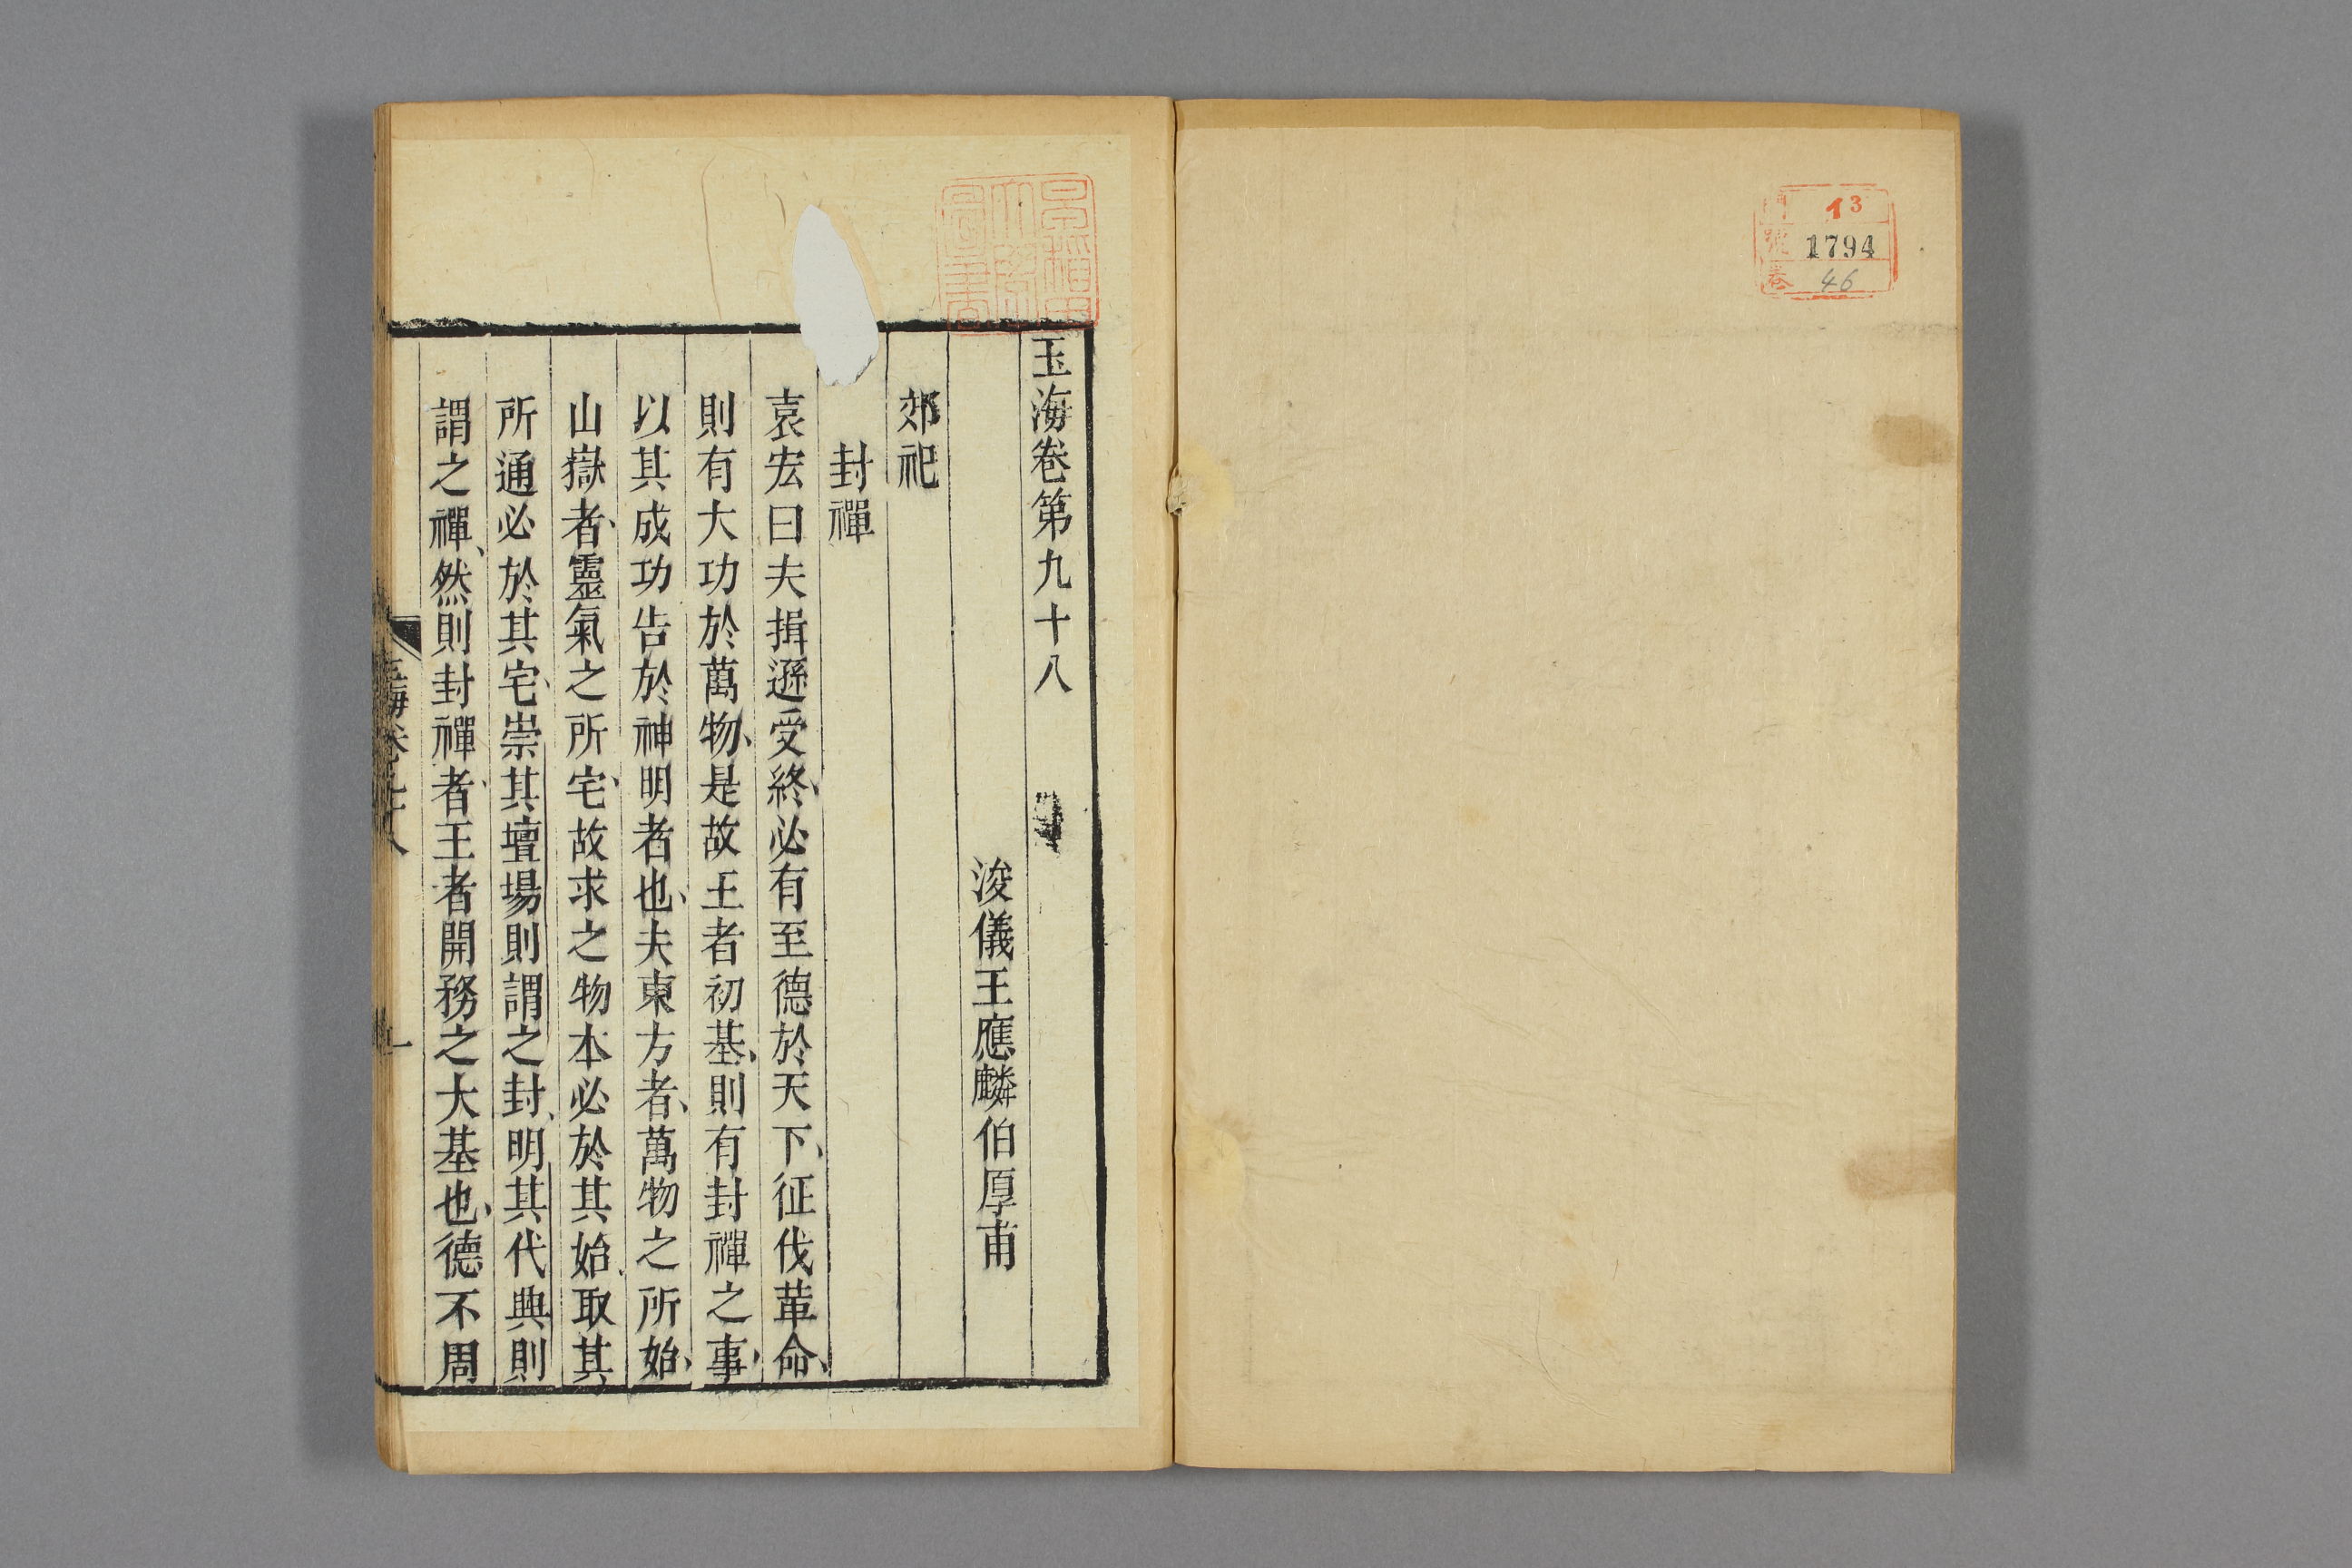 門 13
號 1794
卷 46
早稲田
大學
圖書
玉海卷第九十八
浚儀王應麟伯厚甫
郊祀
封禪
袁宏曰夫揖遜受終必有至德於天下征伐革命
則有大功於萬物是故王者初基則有封禪之事
以其成功告於神明者也夫東方者萬物之所始
山嶽者靈氣之所宅故求之物本必於其始取其
所通必於其宅崇其壇場則謂之封明其代興則
謂之禪然則封禪者王者開務之大基也德不周
玉海卷九十八
一